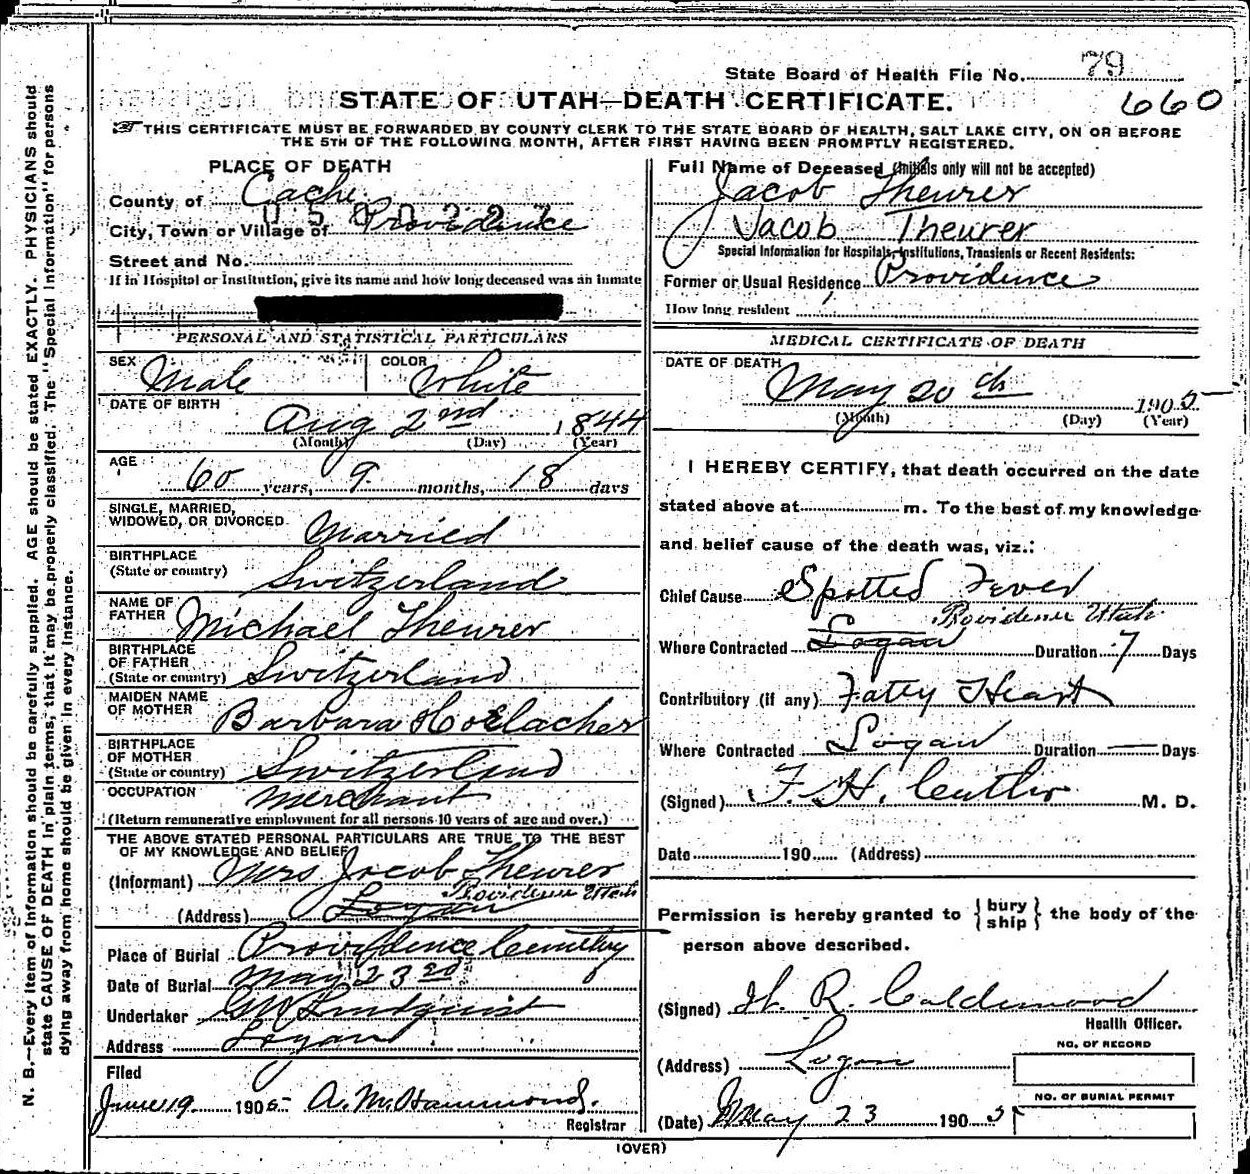 State Board of Health File No. 79
STATE OF UTAH—DEATH CERTIFICATE.
660
THIS CERTIFICATE MUST BE FORWARDED BY COUNTY CLERK TO THE STATE BOARD OF HEALTH, SALT LAKE CITY, ON OR BEFORE
THE 5TH OF THE FOLLOWING MONTH, AFTER FIRST HAVING BEEN PROMPTLY REGISTERED.
PLACE OF DEATH
County of Cache
City, Town or Village of Providence
Street and No.
If in Hospital or Institution, give its name and how long deceased was an inmate
PERSONAL AND STATISTICAL PARTICULARS
SEX Male COLOR White
DATE OF BIRTH
Aug 2nd 1844
(Month) (Day) (Year)
AGE
60 years, 9 months, 18 days
SINGLE, MARRIED,
WIDOWED, OR DIVORCED Married
BIRTHPLACE
(State or country) Switzerland
NAME OF
FATHER Michael Theurer
BIRTHPLACE
OF FATHER
(State or country) Switzerland
MAIDEN NAME
OF MOTHER Barbara
BIRTHPLACE
OF MOTHER
(State or country) Switzerland
OCCUPATION Merchant
(Return remunerative employment for all persons 10 years of age and over.)
THE ABOVE STATED PERSONAL PARTICULARS ARE TRUE TO THE BEST
OF MY KNOWLEDGE AND BELIEF
(Informant) Mrs Jacob Theurer
Providence Utah
(Address) Logan
Place of Burial Providence Cemetery
Date of Burial May 23rd
Undertaker Lindquist
Address Logan
Filed
June 19 1905 A. M. Hammond.
Registrar
Full Name of Deceased (Initials only will not be accepted)
Jacob Theurer
Jacob Theurer
Special Information for Hospitals, Institutions, Transients or Recent Residents:
Former or Usual Residence Providence
How long resident
MEDICAL CERTIFICATE OF DEATH
DATE OF DEATH
May 20th 1905
(Month) (Day) (Year)
I HEREBY CERTIFY, that death occurred on the date
stated above at m. To the best of my knowledge
and belief cause of the death was, viz.:
Chief Cause Spotted Fever
Providence Utah
Where Contracted Logan Duration 7 Days
Contributory (if any) Fatty Heart
Where Contracted Logan Duration — Days
(Signed) F. H. M. D.
Date 190 (Address)
Permission is hereby granted to { bury
ship } the body of the
person above described.
(Signed) R. Calderwood
Health Officer.
(Address) Logan
NO. OF RECORD
NO. OF BURIAL PERMIT
(Date) May 23 1905
(OVER)
N. B.—Every item of information should be carefully supplied. AGE should be stated EXACTLY. PHYSICIANS should
state CAUSE OF DEATH in plain terms, that it may be properly classified. The "Special Information" for persons
dying away from home should be given in every instance.